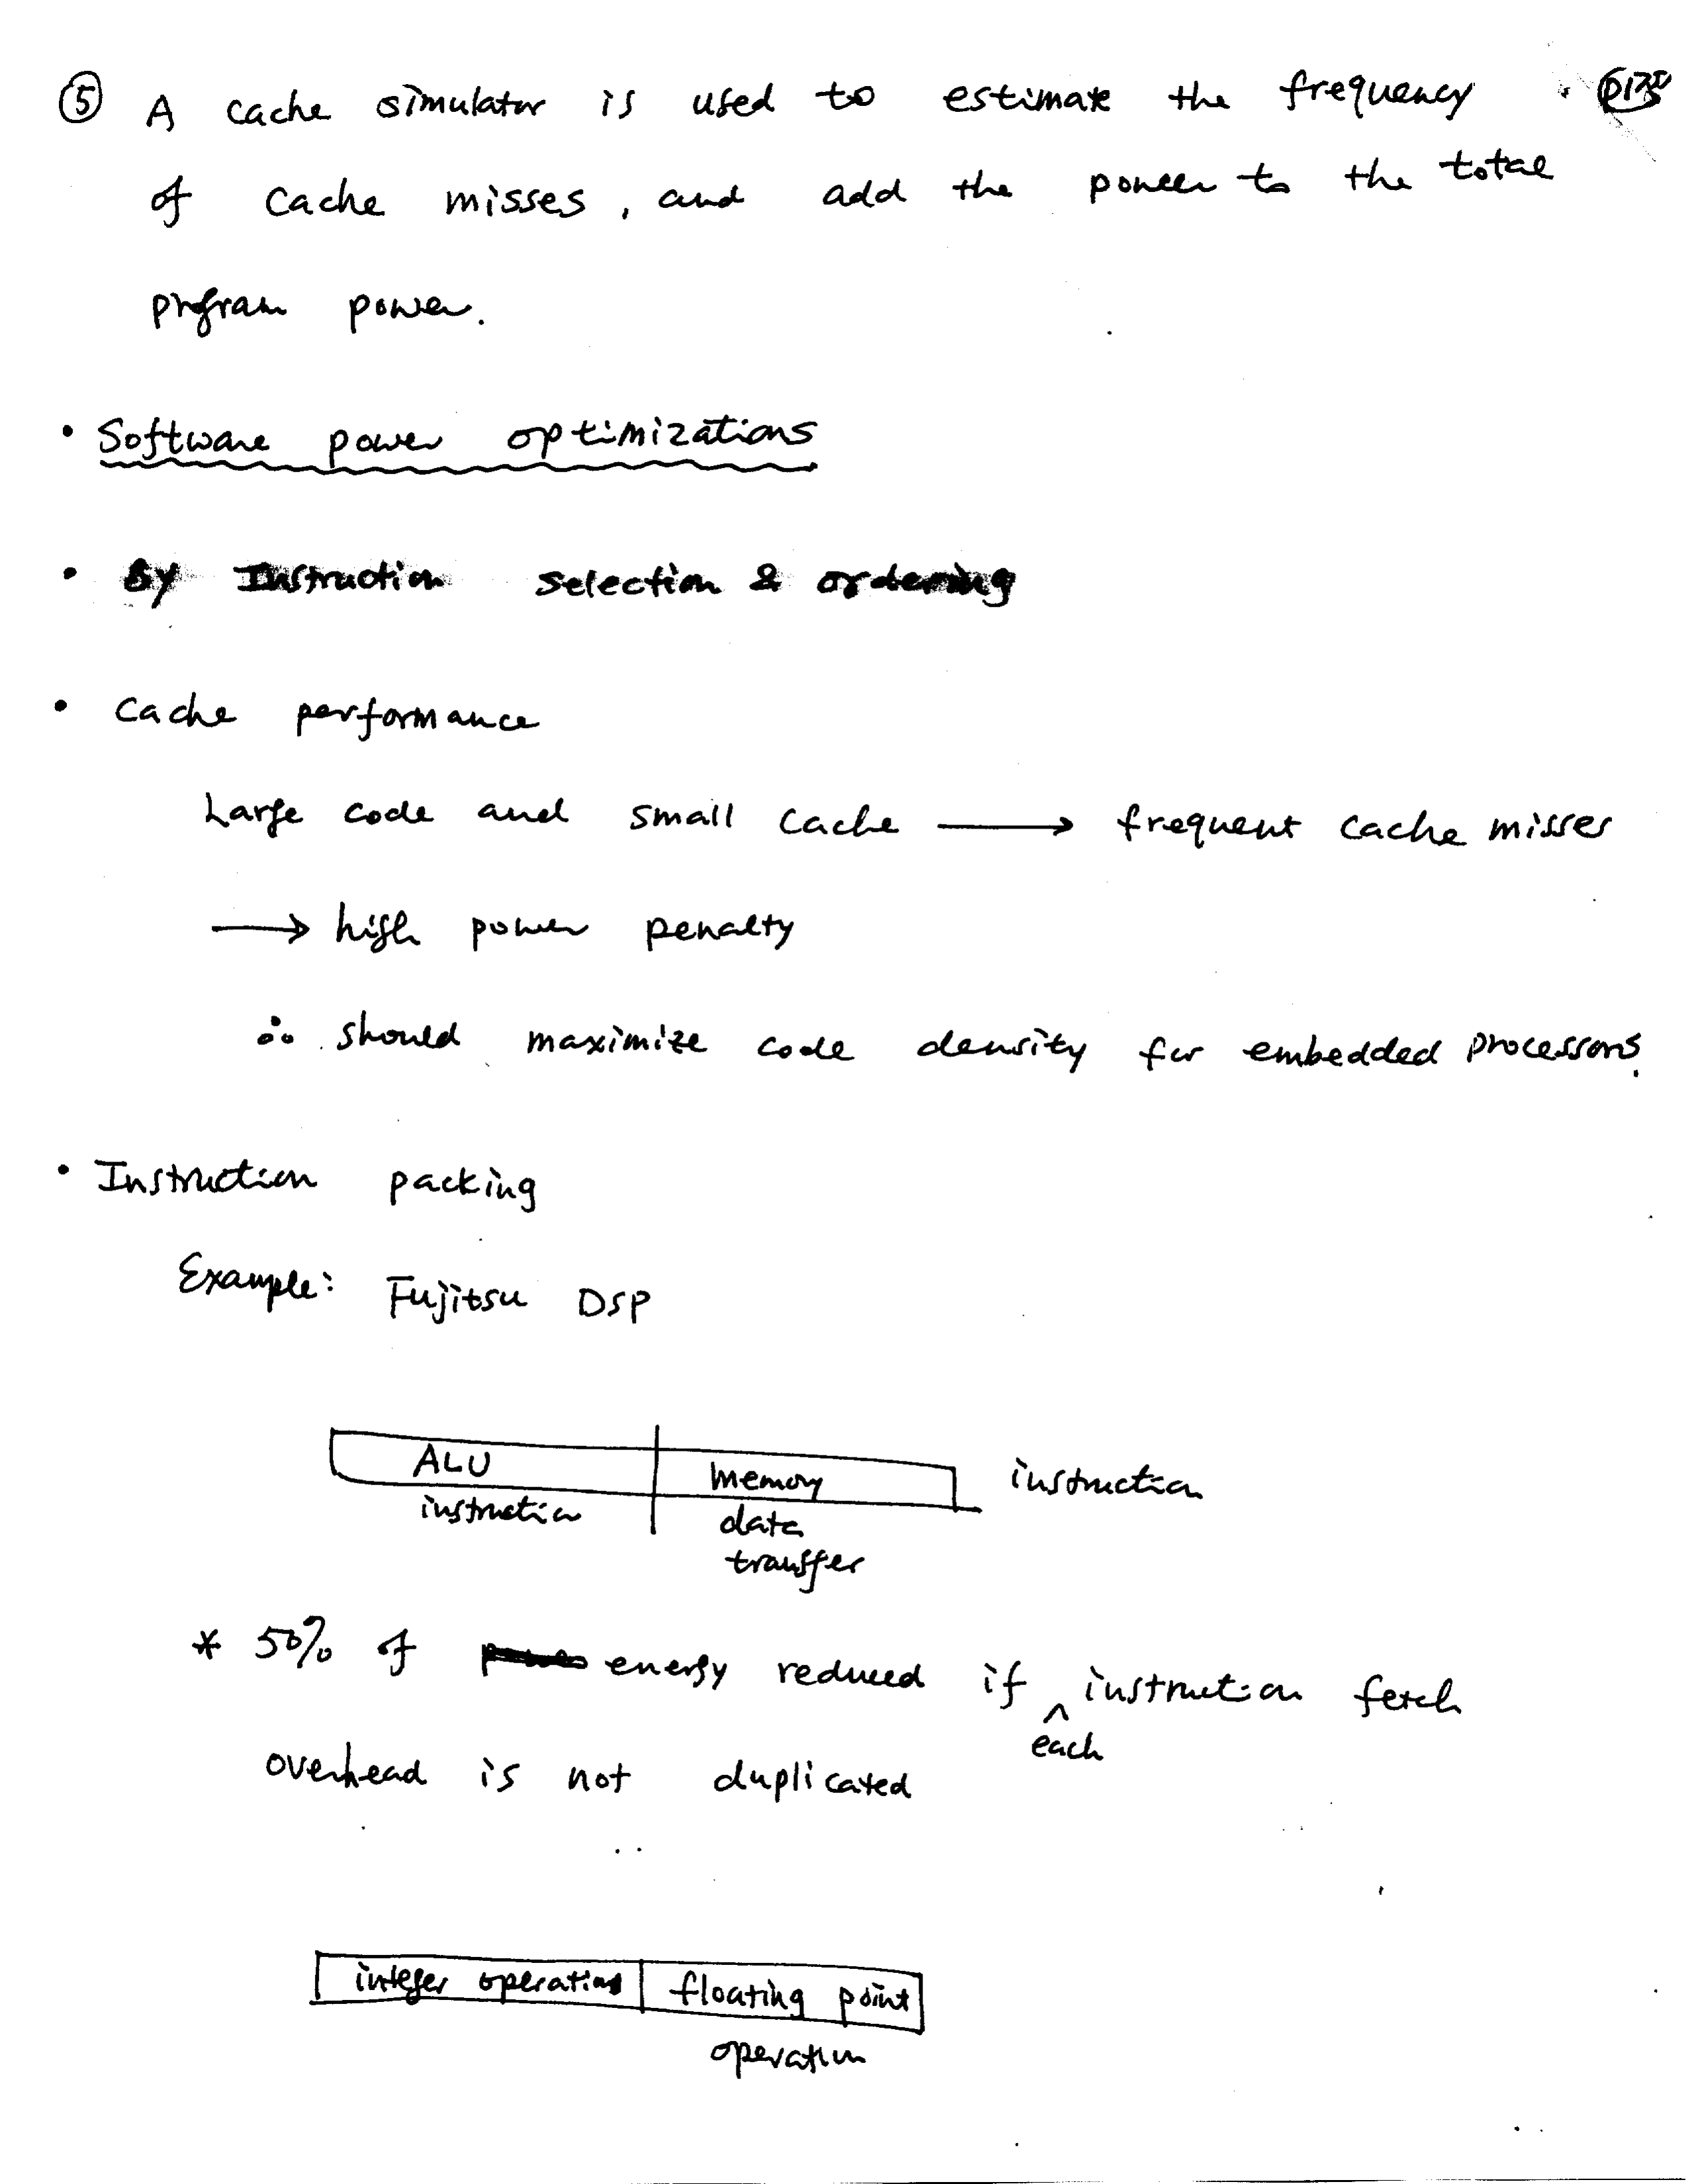 ⑤ A cache simulator is used to estimate the frequency
of cache misses, and add the power to the total
program power.
• Software power optimizations
• By Instruction selection & ordering
• Cache performance
Large code and small cache ⟶ frequent cache misses
⟶ high power penalty
∴ should maximize code density for embedded processors.
• Instruction packing
Example: Fujitsu DSP
ALU memory instruction
instruction data
transfer
* 50% of energy reduced if ^ instruction fetch
each
overhead is not duplicated
integer operations floating point
operation